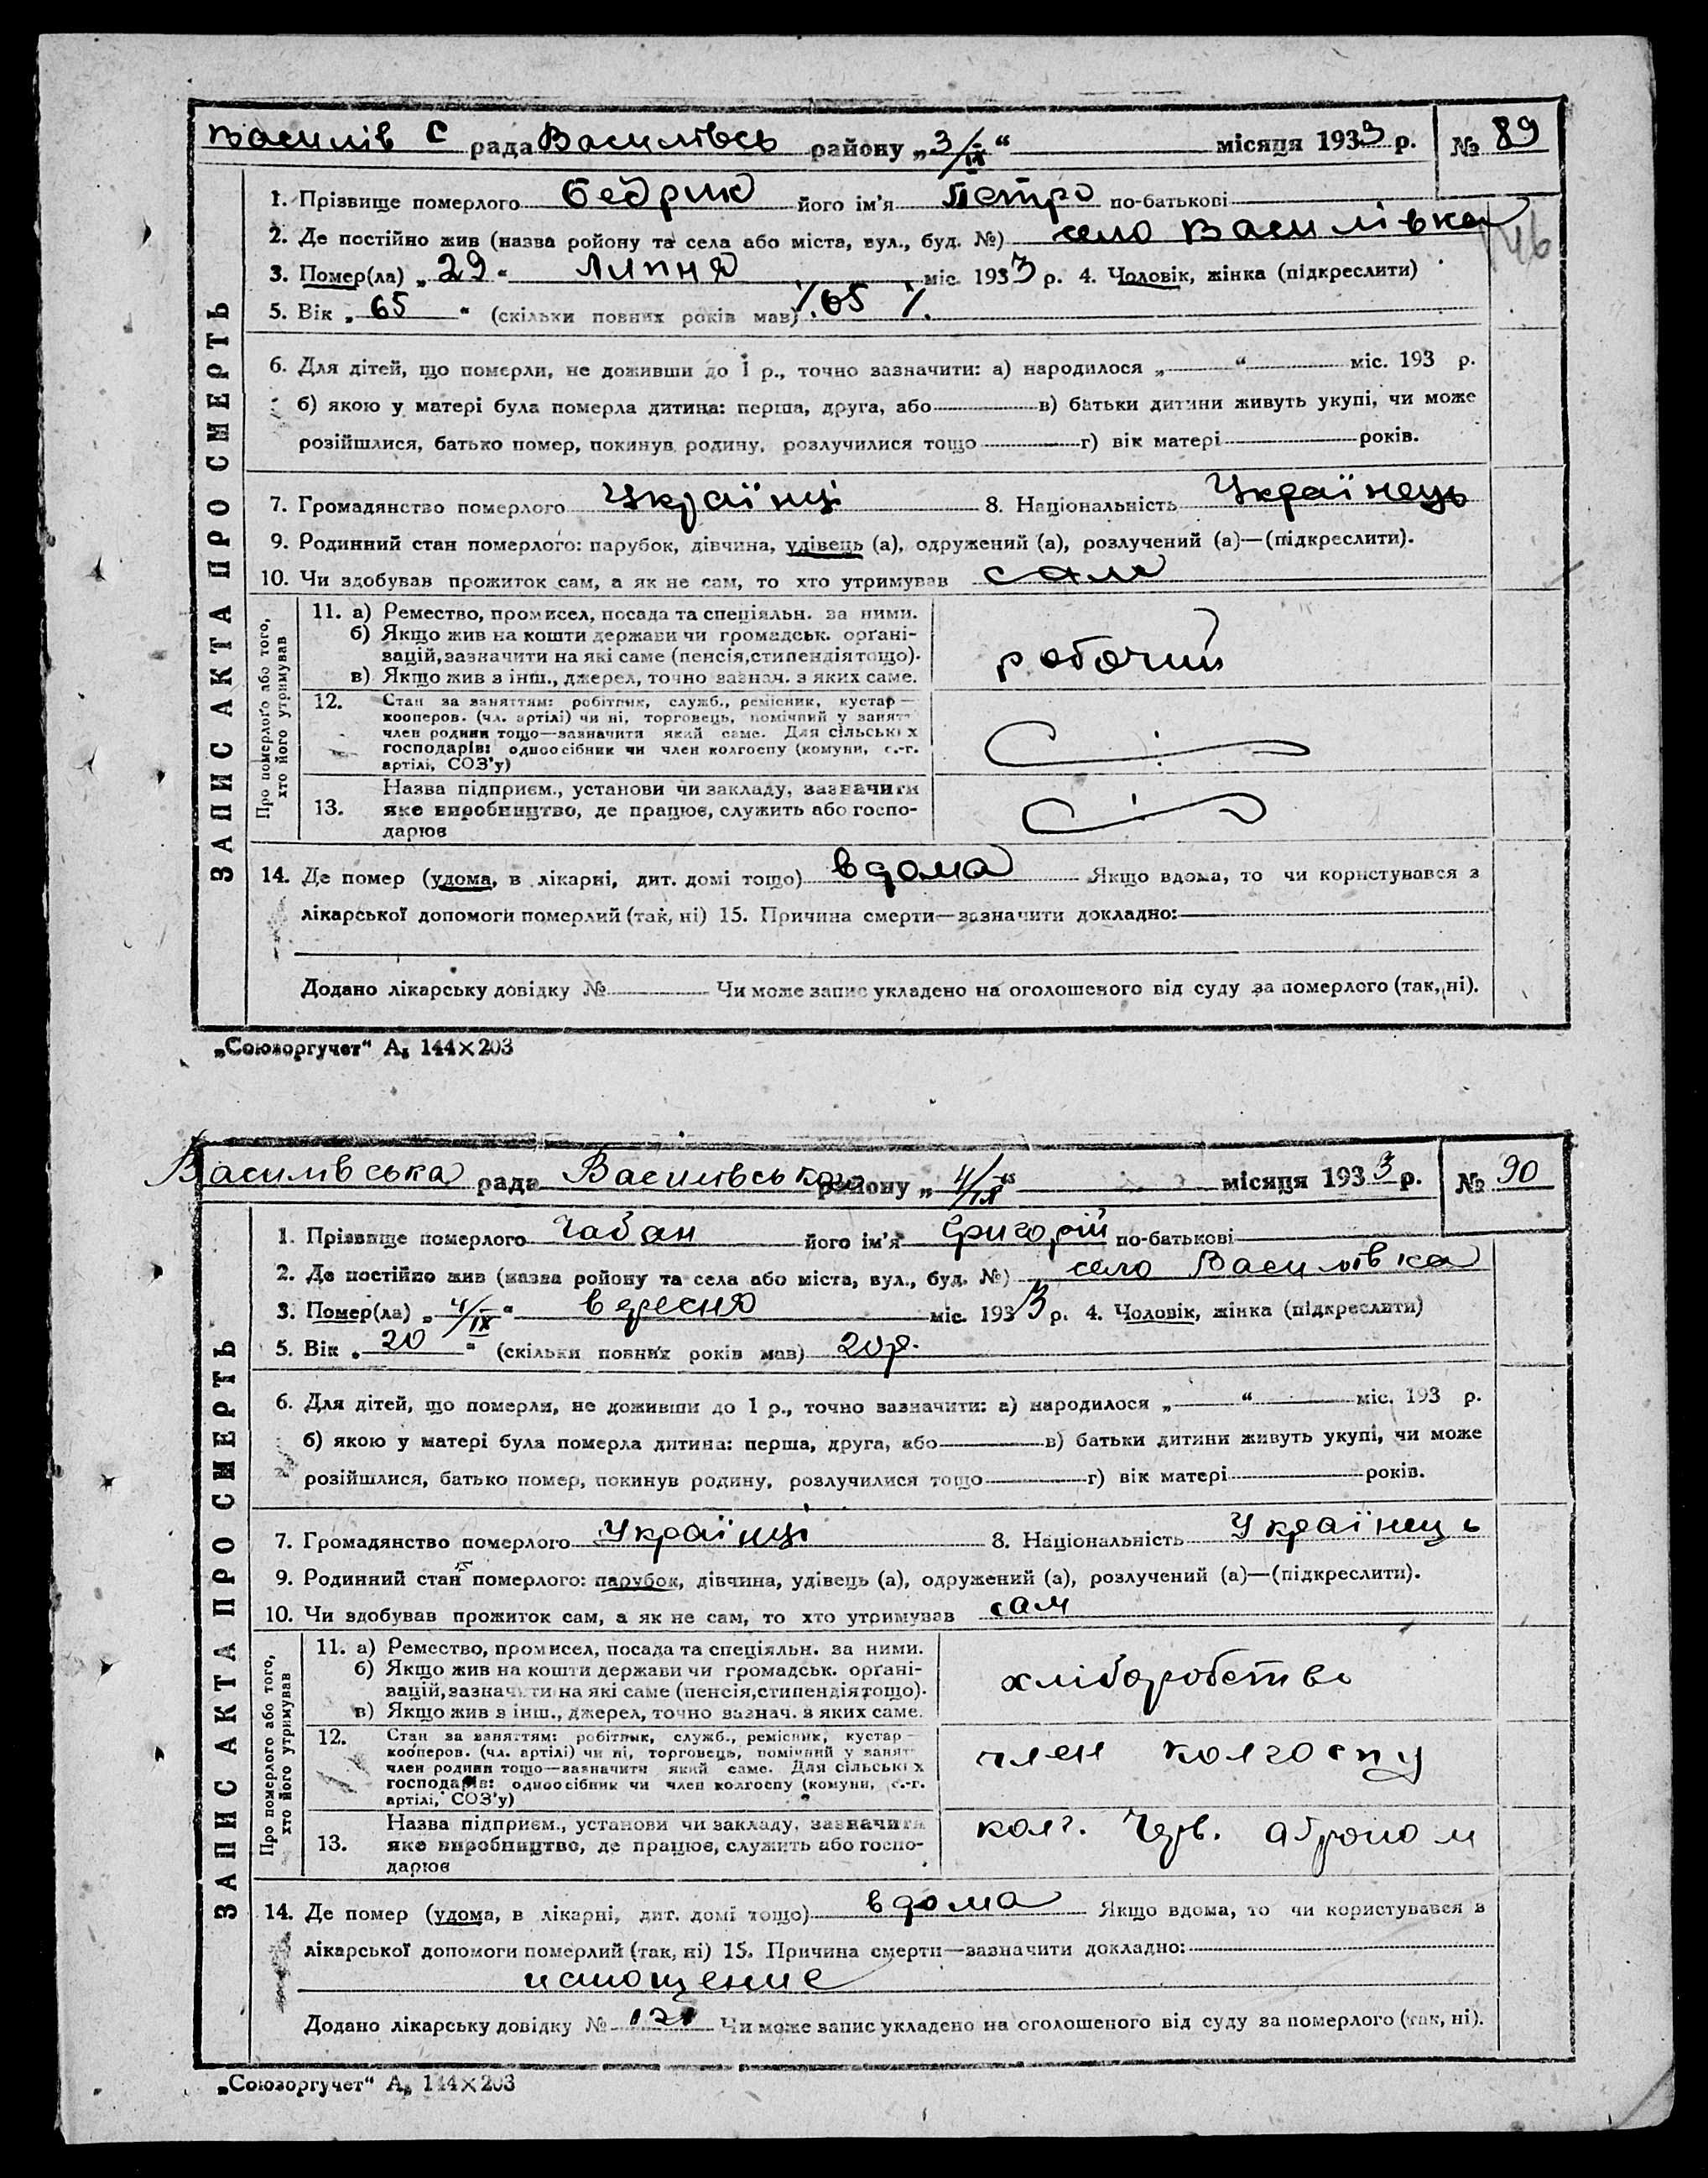 Василів С рада Василівсь району „3/IX“ місяця 1933 р. № 89
46
ЗАПИС АКТА ПРО СМЕРТЬ
1. Прізвище померлого Бедрик його ім'я Петро по-батькові
2. Де постійно жив (назва ройону та села або міста, вул., буд. №) село Василівка
3. Помер(ла) „29“ Липня міс. 1933 р. 4. Чоловік, жінка (підкреслити)
5. Вік „65“ (скільки повних років мав) /.65 /.
6. Для дітей, що померли, не доживши до 1 р., точно зазначити: а) народилося „ “ міс. 193 р.
б) якою у матері була померла дитина: перша, друга, або в) батьки дитини живуть укупі, чи може
розійшлися, батько помер, покинув родину, розлучилися тощо г) вік матері років.
7. Громадянство померлого Українці 8. Національність Українець
9. Родинний стан померлого: парубок, дівчина, удівець (а), одружений (а), розлучений (а)—(підкреслити).
10. Чи здобував прожиток сам, а як не сам, то хто утримував сам
Про померлого або того, хто його утримував
11. а) Ремество, промисел, посада та спеціяльн. за ними.
б) Якщо жив на кошти держави чи громадськ. орґані-
зацій, зазначити на які саме (пенсія, стипендія тощо).
в) Якщо жив з інш., джерел, точно зазнач. з яких саме.
робочий
12. Стан за заняттям: робітник, служб., ремісник, кустар—
кооперов. (чл. артілі) чи ні, торговець, помічний у занятт
член родини тощо—зазначити який саме. Для сільських
господарів: одноосібник чи член колгоспу (комуни, с.-г.
артілі, СОЗ'у)
13. Назва підприєм., установи чи закладу, зазначити
яке виробництво, де працює, служить або госпо-
дарює
14. Де помер (удома, в лікарні, дит. домі тощо) вдома Якщо вдома, то чи користувався з
лікарської допомоги померлий (так, ні) 15. Причина смерти—зазначити докладно:
Додано лікарську довідку № Чи може запис укладено на оголошеного від суду за померлого (так, ні).
„Союзоргучет“ А₅ 144×203
Василівська рада Василівського району „4/IX“ місяця 1933 р. № 90
ЗАПИС АКТА ПРО СМЕРТЬ
1. Прізвище померлого Чабан його ім'я Григорій по-батькові
2. Де постійно жив (назва ройону та села або міста, вул., буд. №) село Василівка
3. Помер(ла) „4/IX“ вересня міс. 1933 р. 4. Чоловік, жінка (підкреслити)
5. Вік „20“ (скільки повних років мав) 20 р.
6. Для дітей, що померли, не доживши до 1 р., точно зазначити: а) народилося „ “ міс. 193 р.
б) якою у матері була померла дитина: перша, друга, або в) батьки дитини живуть укупі, чи може
розійшлися, батько помер, покинув родину, розлучилися тощо г) вік матері років.
7. Громадянство померлого Українці 8. Національність Українець
9. Родинний стан померлого: парубок, дівчина, удівець (а), одружений (а), розлучений (а)—(підкреслити).
10. Чи здобував прожиток сам, а як не сам, то хто утримував сам
Про померлого або того, хто його утримував
11. а) Ремество, промисел, посада та спеціяльн. за ними.
б) Якщо жив на кошти держави чи громадськ. орґані-
зацій, зазначити на які саме (пенсія, стипендія тощо).
в) Якщо жив з інш., джерел, точно зазнач. з яких саме.
хліборобство
12. Стан за заняттям: робітник, служб., ремісник, кустар—
кооперов. (чл. артілі) чи ні, торговець, помічний у занятт
член родини тощо—зазначити який саме. Для сільських
господарів: одноосібник чи член колгоспу (комуни, с.-г.
артілі, СОЗ'у)
член колгоспу
13. Назва підприєм., установи чи закладу, зазначити
яке виробництво, де працює, служить або госпо-
дарює
колг. Черв. агроном
14. Де помер (удома, в лікарні, дит. домі тощо) вдома Якщо вдома, то чи користувався з
лікарської допомоги померлий (так, ні) 15. Причина смерти—зазначити докладно:
истощение
Додано лікарську довідку № 121 Чи може запис укладено на оголошеного від суду за померлого (так, ні).
„Союзоргучет“ А₅ 144×203